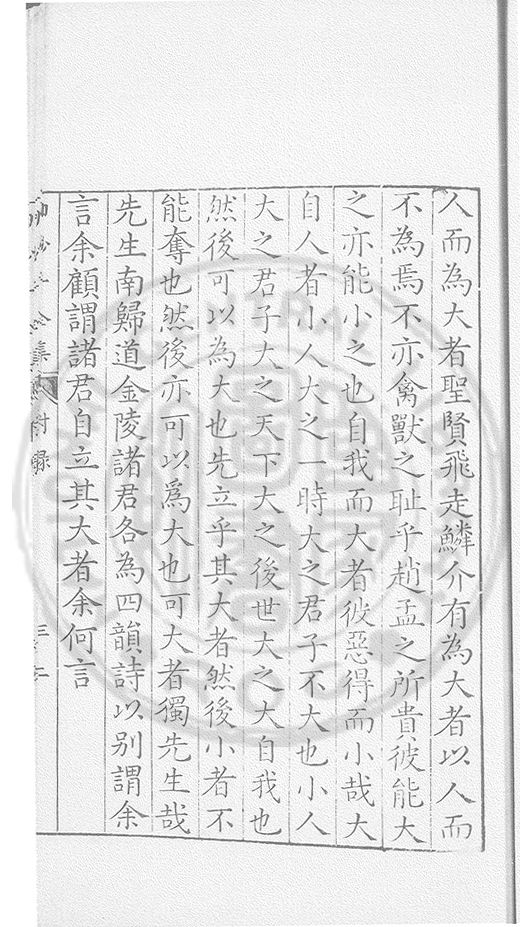 人而為大者聖賢飛走鱗介有為大者以人而
不為焉不亦禽獸之耻乎趙孟之所貴彼能大
之亦能小之也自我而大者彼惡得而小哉大
自人者小人大之一時大之君子不大也小人
大之君子大之天下大之後世大之大自我也
然後可以為大也先立乎其大者然後小者不
能奪也然後亦可以爲大也可大者獨先生哉
先生南歸道金陵諸君各為四韻詩以别謂余
言余顧謂諸君自立其大者余何言
集 附録